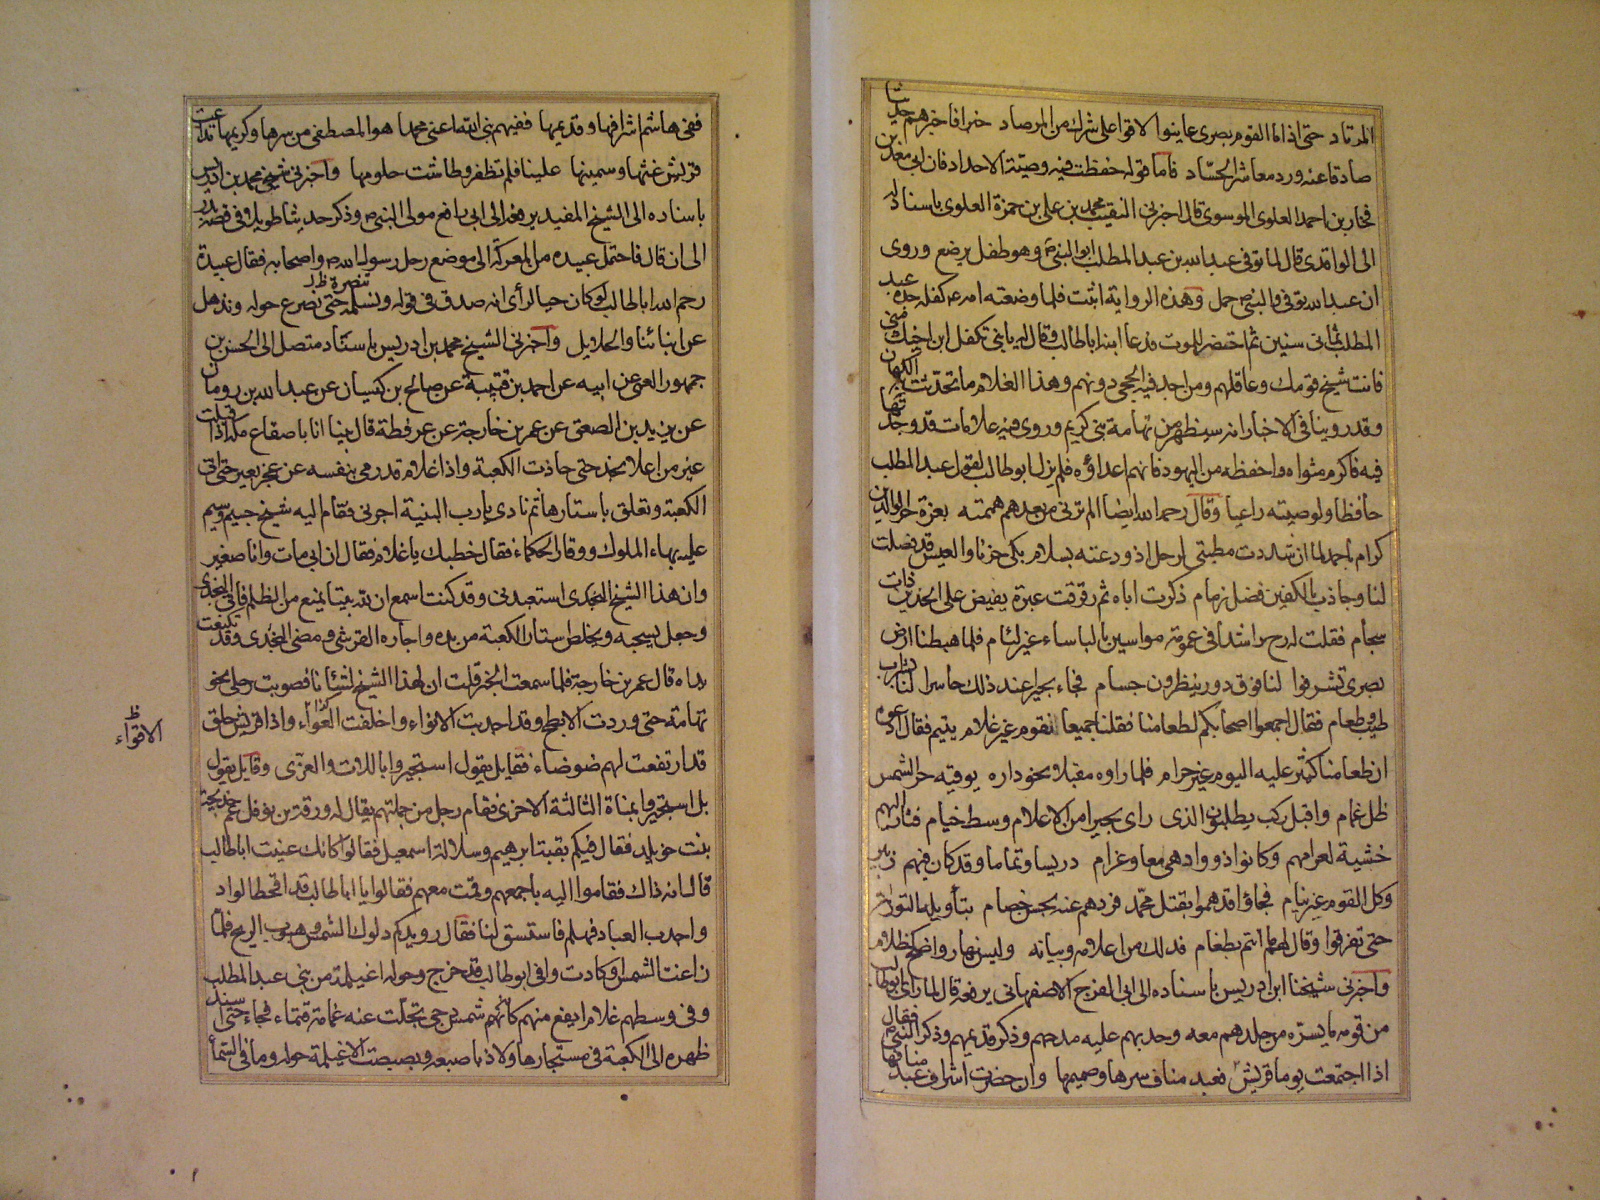 المرتاد حتى اذا ما القوم بصرى عاينوا لاقوا على شرك من المرصاد حبرا فاخبرهم حديثا
صادقا عنه ورد معاشر الحساد فاما قوله حفظت فيه وصية الاجداد فان ابي معد بن
فخار بن احمد العلوي الموسوي قال اخبرني النقيب محمد بن علي بن حمزة العلوي باسناد له
الى الواقدي قال لما توفي عبد الله بن عبد المطلب ابو النبي ص وهو طفل يرضع وروي
ان عبد الله توفي والنبي ص حمل وهذه الرواية اثبت فلما وضعته امه كفله جده عبد
المطلب ثماني سنين ثم احتضر للموت فدعا ابنه ابا طالب فقال له يا بني تكفل ابن اخيك مني
فانت شيخ قومك وعاقلهم ومن اجد فيه الحجى دونهم وهذا الغلام ما تحدثت به الكهان
وقد روينا في الاخبار انه سيظهر من تهامة نبي كريم وروي فيه علامات قد وجدتها
فيه فاكرم مثواه واحفظه من اليهود فانهم اعداؤه فلم يزل ابو طالب لقول عبد المطلب
حافظا ولوصيته راعيا وقال رحمه الله ايضا الم ترني من بعد هم هممته بعزة حر الوالدين
كرام باحمد لما ان شددت مطيتي لرحل اذ ودعته بسلام بكى حزنا والعيس قد فصلت
لنا وجاذب بالكفين فضل زمام ذكرت اباه ثم رقرقت عبرة يفيض على الخدين ذات
سجام فقلت له رح راشدا في عمومة مواسين بالباساء غير لئام فلما هبطنا ارض
بصرى تشرفوا لنا فوق دور ينظرون جسام فجاء بحير عند ذلك حاسرا لنا بشراب
طيب وطعام فقال اجمعوا اصحابكم لطعامنا فقلنا جميعا نقوم غير غلام يتيم فقال ادعوه
ان طعامنا كثير عليه اليوم غير حرام فلما راوه مقبلا نحو داره يوقيه حر الشمس
ظل غمام واقبل ركب يطلبون الذي راى بحيرا من الاعلام وسط خيام فثار اليهم
خشية لعرامهم وكانوا ذوو ادهي معا وعرام دريسا وتماما وقد كان فيهم زبير
وكل القوم غير نيام فجاؤا قد هموا بقتل محمد فردهم عنه بحسن خصام بتأويله التوراة
حتى تفرقوا وقال لهم ما انتم بطغام فذلك من اعلامه وبيانه وليس نهار واضح كظلام
واخبرني شيخنا ابن ادريس باسناده الى ابي الفرج الاصفهاني يرفعه قال لما راى ابو طالب
من قومه ما يسره من جلدهم معه وحدبهم عليه مدحهم وذكر قديمهم وذكر النبي ص فقال
اذا اجتمعت يوما قريش فعبد مناف سرها وصميمها وان حضرت اشراف عبد منافها
ففي هاشم اشرافها وقديمها ففيهم نبي الله اعني محمدا هو المصطفى من سرها وكريمها تداعت
قريش غثها وسمينها علينا فلم تظفر وطاشت حلومها واخبرني شيخي محمد بن ادريس
باسناده الى الشيخ المفيد يرفعه الى ابي رافع مولى النبي ص وذكر حديثا طويلا في قصة بدر
الى ان قال فاحتمل عبيده من المعركة الى موضع رحل رسول الله ص واصحابه فقال عبيدة
رحم الله ابا طالب لو كان حيا لراى انه صدق في قوله ونسلمه حتى نصرع حوله ونذهل
ننصره ظ
عن ابنائنا والحلايل واخبرني الشيخ محمد بن ادريس باسناد متصل الى الحسن بن
جمهور العمي عن ابيه عن احمد بن قتيبة عن صالح بن كيسان عن عبد الله بن رومان
عن يزيد بن الصعق عن عمر بن خارجة عن عرفطة قال بينا انا باصفاع مكة اذ اقبلت
عير من اعلا نجد حتى حاذت الكعبة واذا غلام قد رمى بنفسه عن عجز بعير حتى اتى
الكعبة وتعلق باستارها ثم نادى يا رب البنية اجرني فقام اليه شيخ جسيم وسيم
عليه بهاء الملوك ووقار الحكماء فقال خطبك يا غلام فقال ان ابي مات وانا صغير
وان هذا الشيخ النجدي استعبدني وقد كنت اسمع ان لله بيتا يمنع من الظلم فاتى النجدي
وجعل يسحبه ويخلص استار الكعبة من يده واجاره القرشي ومضى النجدي وقد تكنعت
يداه قال عمر بن خارجة فلما سمعت الخبر قلت ان لهذا الشيخ لشئانا فصوبت رحلي نحو
تهامة حتى وردت الابطح وقد اجدبت الانواء واخلفت العواء واذا قريش حلق
الاقواء ظ
قد ارتفعت لهم ضوضاء فقايل يقول استجيروا باللات والعزى وقايل يقول
بل استجيروا بمناة الثالثة الاخرى فقام رجل من جملتهم يقال له ورقة بن نوفل عم خديجة
بنت خويلد فقال فيكم بقية ابرهيم وسلالة اسمعيل فقالوا كانك عنيت ابا طالب
قال انه ذاك فقاموا اليه باجمعهم وقمت معهم فقالوا يا ابا طالب قد اقحط الواد
واجدب العباد فهلم فاستسق لنا فقال رويدكم دلوك الشمس وهبوب الريح فلما
زاغت الشمس او كادت وافى ابو طالب قد خرج وحوله اغيلمة من بني عبد المطلب
وفي وسطهم غلام ايفع منهم كانهم شمس دجى تجلت عنه غمامة قتماء فجاء حتى اسند
ظهره الى الكعبة في مستجارها ولاذ باصبعه وبصبصت الاغيلمة حوله وما في السماء